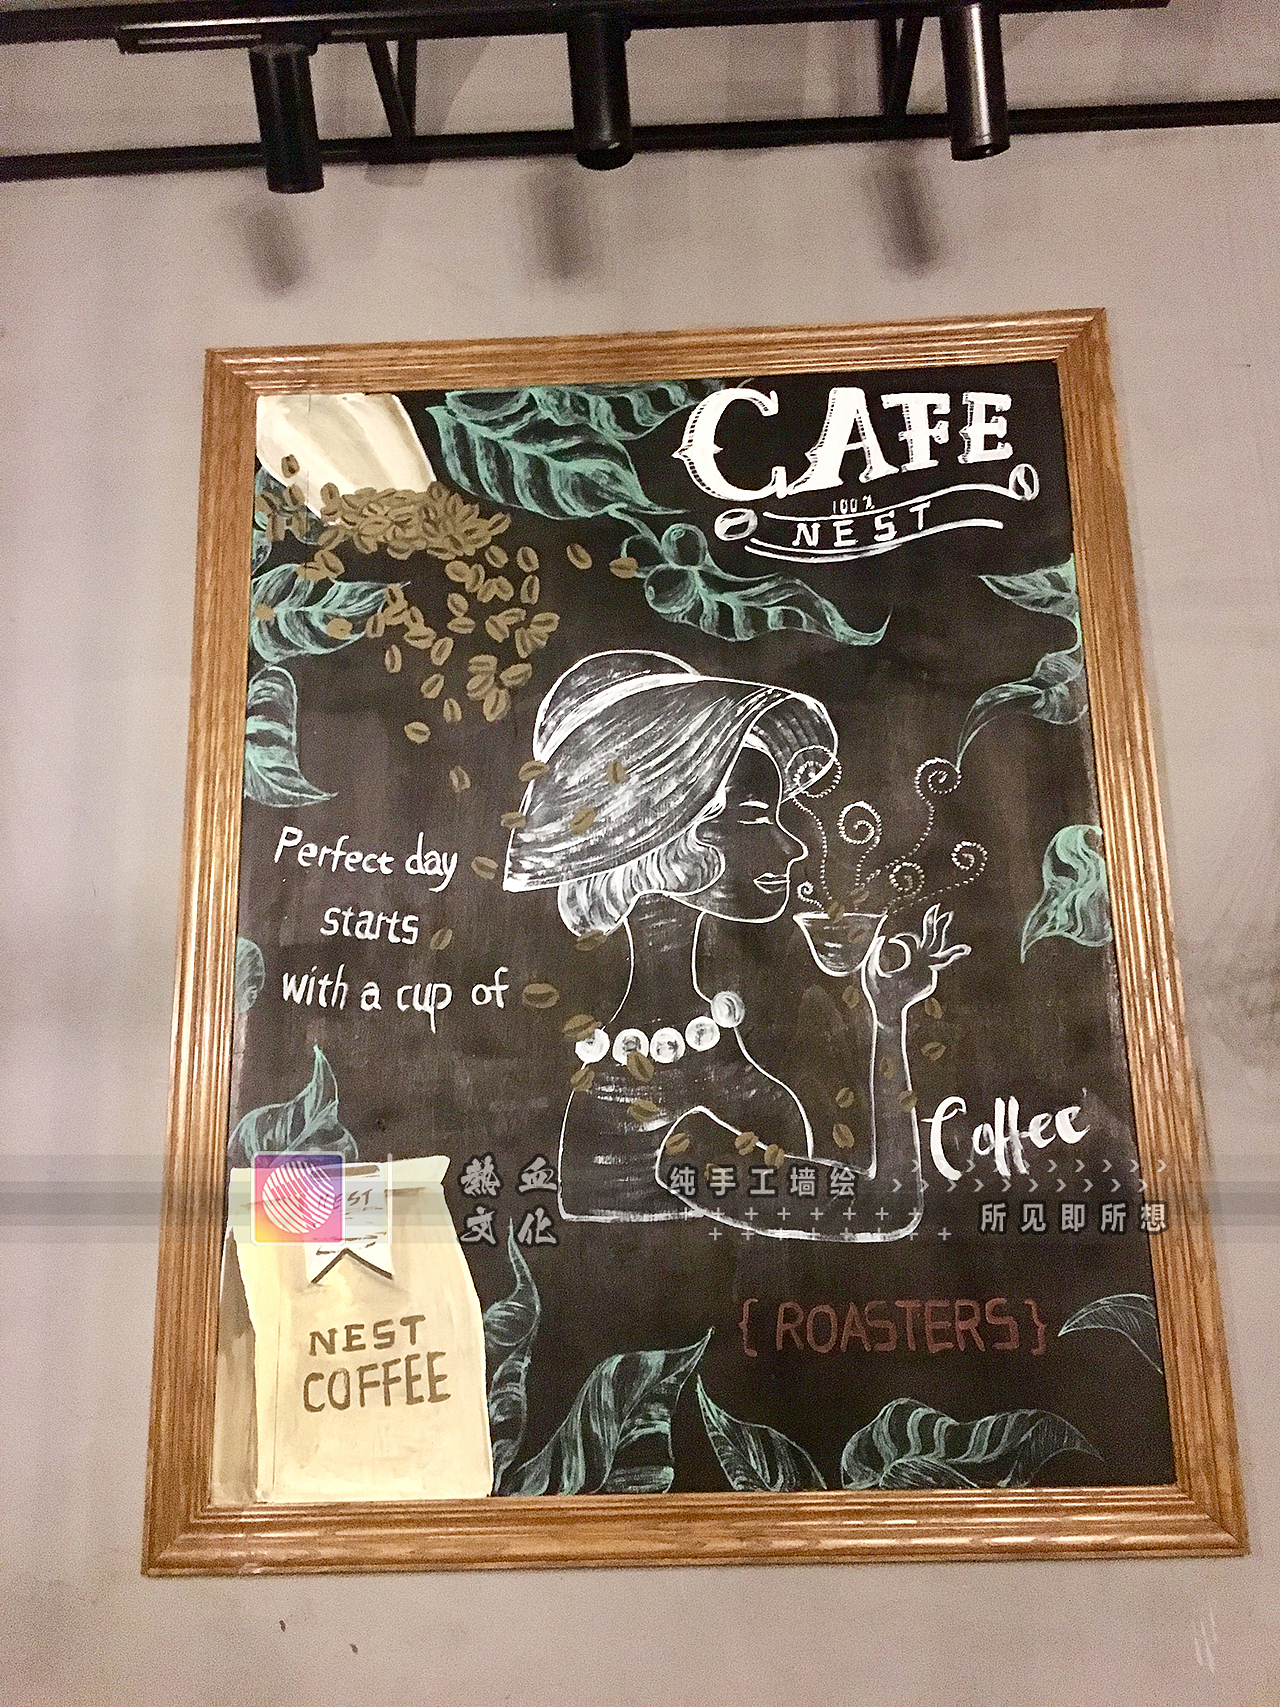 CAFE
100%
NEST
Perfect day
starts
with a cup of
Coffee
NEST
熱血
文化
纯手工墙绘
所见即所想
{ROASTERS}
NEST
COFFEE